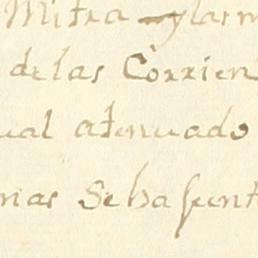 Mitra y las m
de las Corrien
ual atenuado
nas Se ha sent